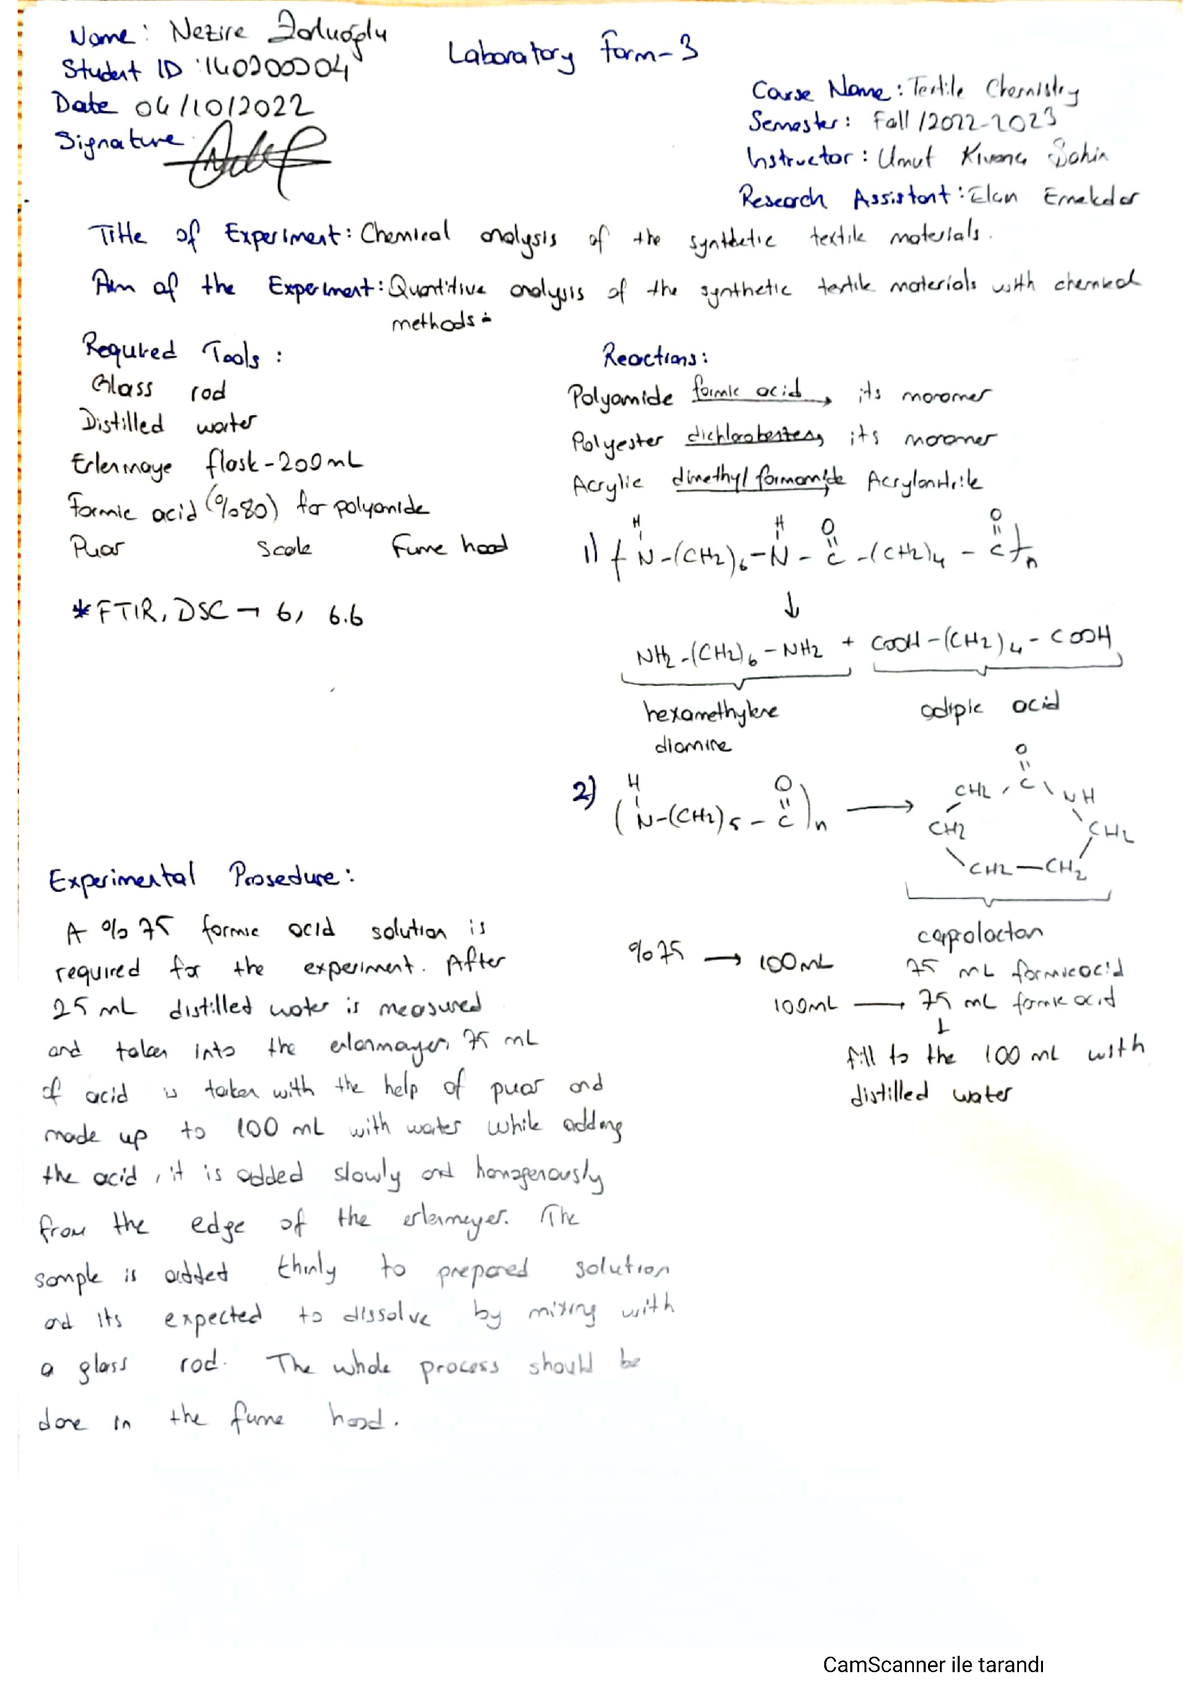 Name: Nezire
Laboratory Form-3
Student ID:
Date 04/10/2022
Signature
Course Name: Textile Chemistry
Semester: Fall/2022-2023
Instructor: Umut Kıvanç Şahin
Research Assistant: Elçin Emekdar
Title of Experiment: Chemical analysis of the synthetic textile materials.
Aim of the Experiment: Quantitive analysis of the synthetic textile materials with chemical
methods.
Required Tools:
Glass rod
Distilled water
Erlenmaye flask-200mL
Formic acid (%80) for polyamide
Puar Scale Fume hood
*FTIR, DSC → 6, 6.6
Reactions:
Polyamide formic acid → its monomer
Polyester → its monomer
Acrylic dimethyl formamide → Acrylonitrile
H H O O
1) ( N-(CH2)6-N-C-(CH2)4-C )n
↓
NH2-(CH2)6-NH2 + COOH-(CH2)4-COOH
hexamethylene adipic acid
diamine
2) H O O
( N-(CH2)5-C )n → CH2 C NH
CH2 CH2
CH2-CH2
caprolactan
%75 → 100mL 75 mL formic acid
100mL → 75 mL formic acid
↓
fill to the 100 mL with
distilled water
Experimental Prosedure:
A %75 formic acid solution is
required for the experiment. After
25 mL distilled water is measured
and taken into the erlenmayer, 75 mL
of acid is taken with the help of puar and
made up to 100 mL with water while adding
the acid, it is added slowly and homogenously
from the edge of the erlenmeyer. The
sample is added thinly to prepared solution
and its expected to dissolve by mixing with
a glass rod. The whole process should be
done in the fume hood.
CamScanner ile tarandı